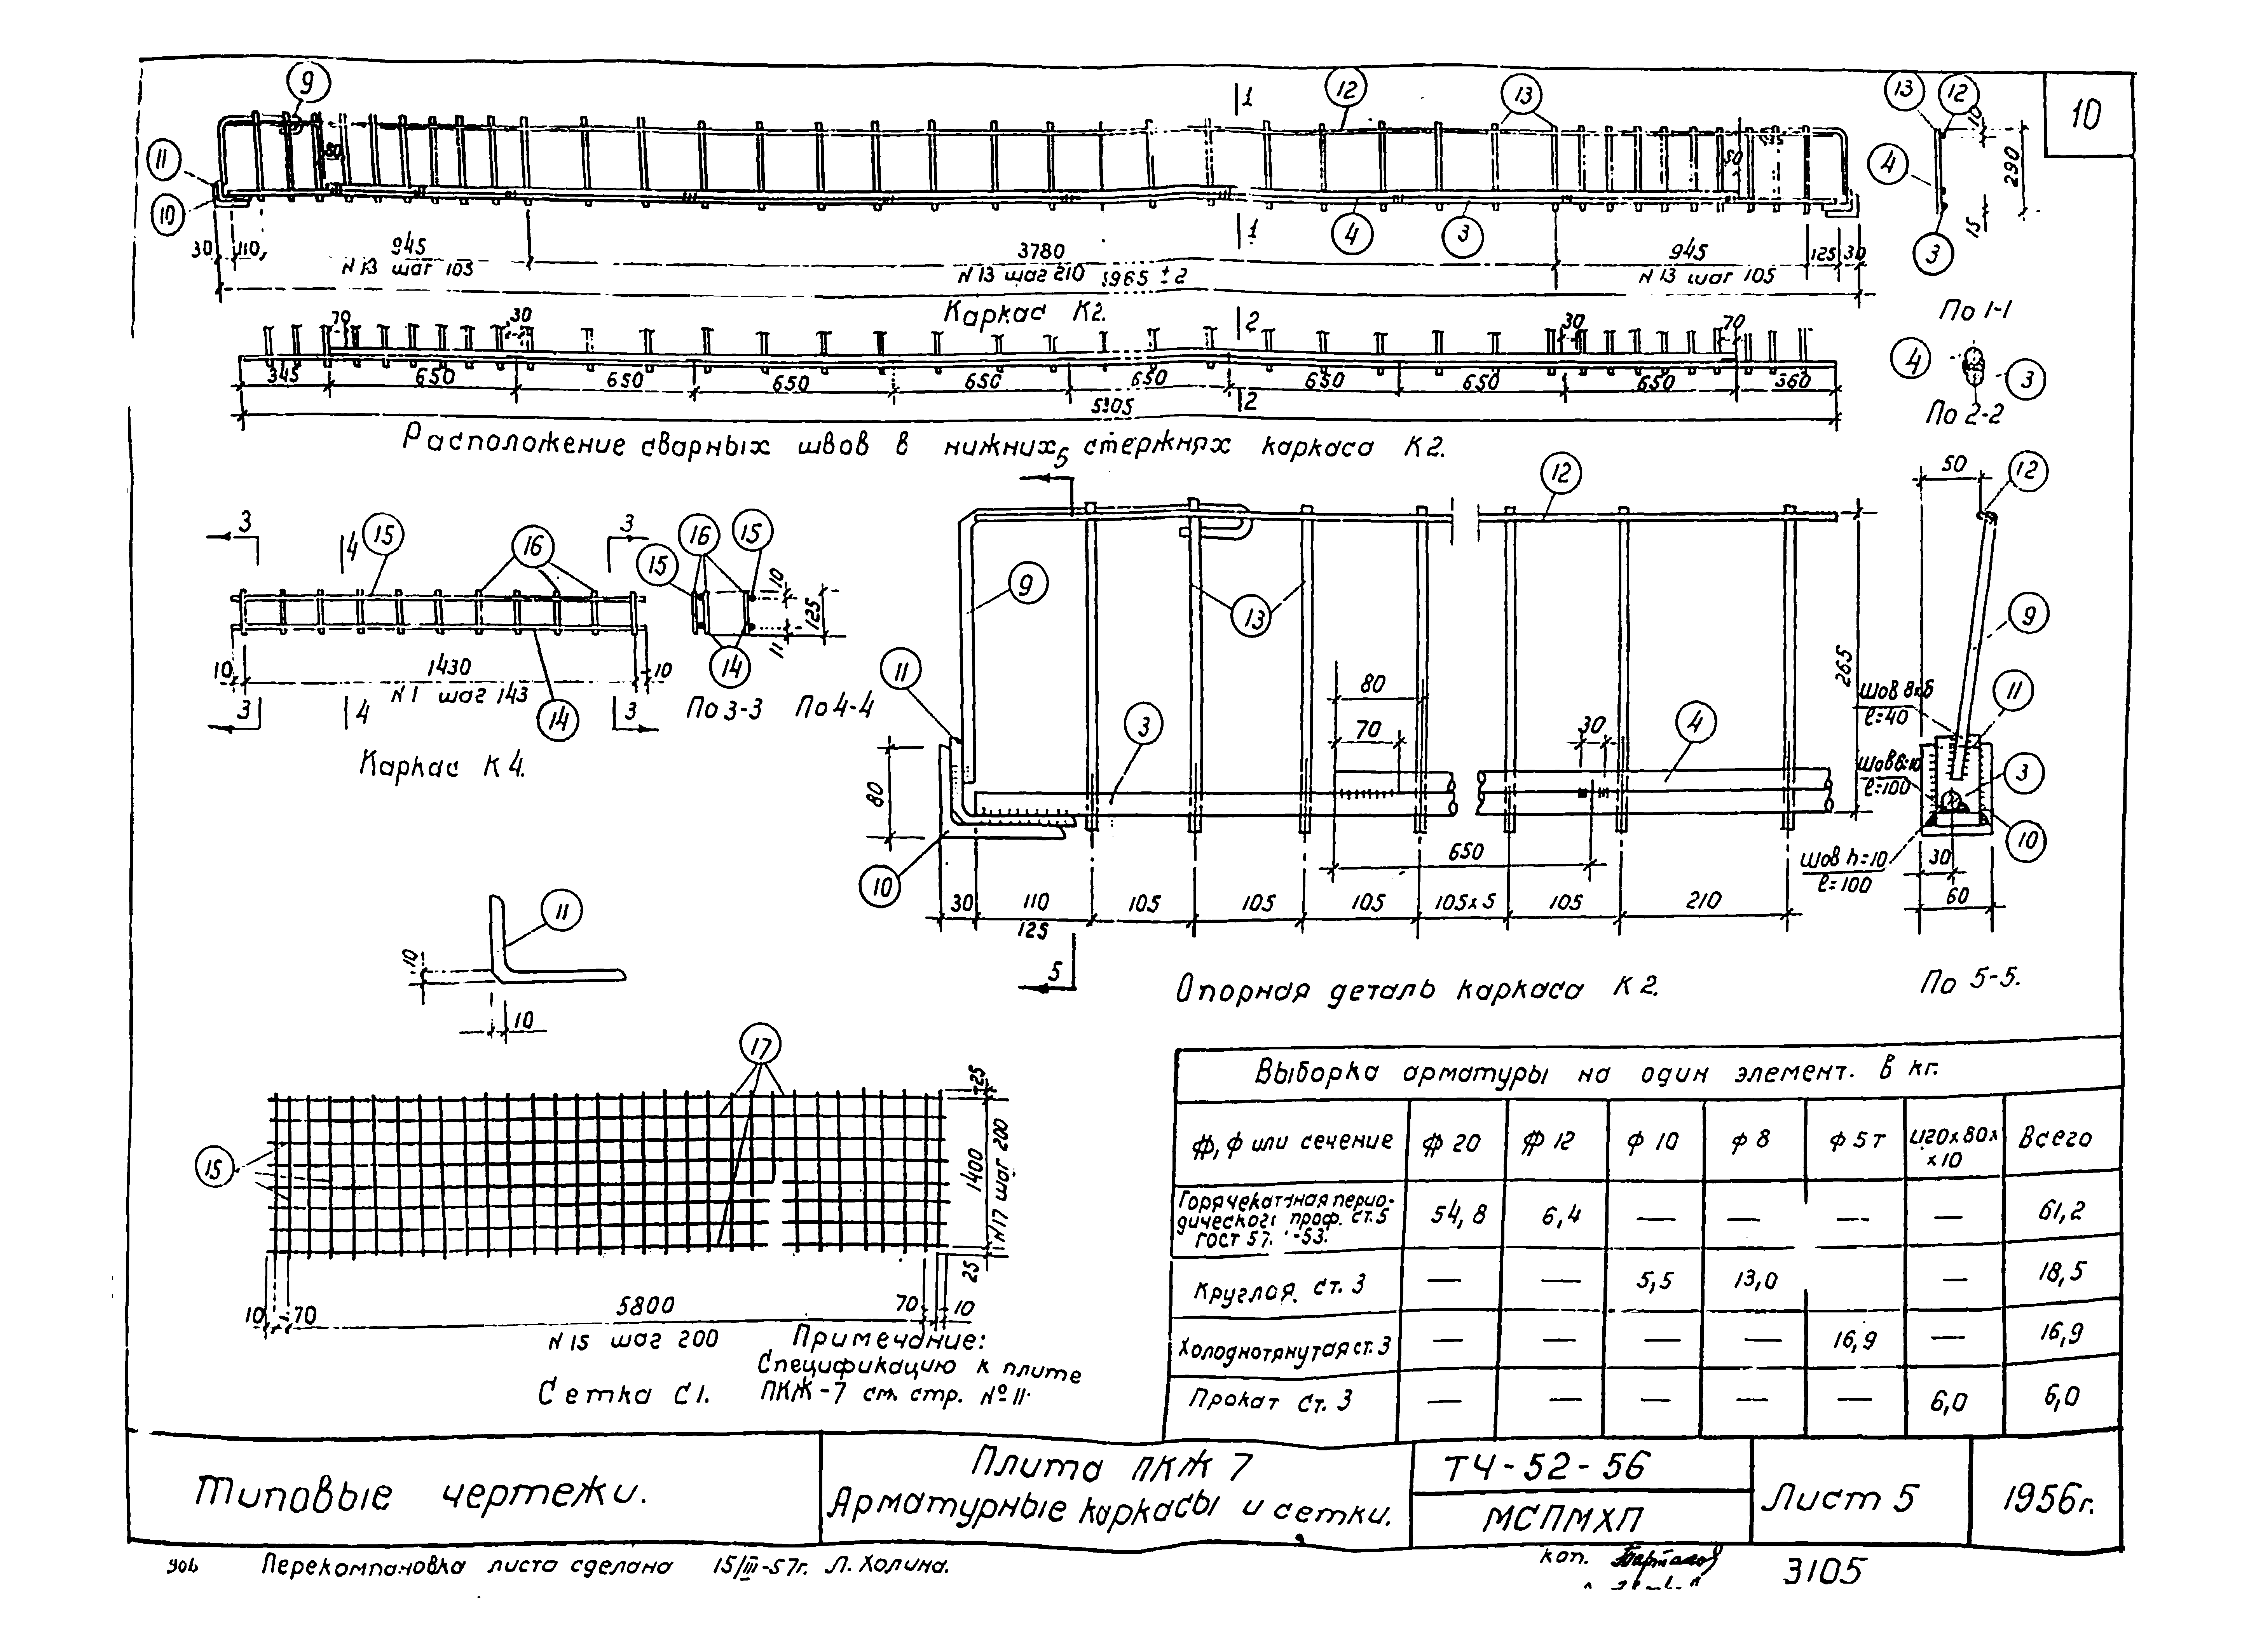 10
9
12
13
13
12
1
11
10
80
50
4
3
1
10
290
15
4
3
30
110
945
N 13 шаг 105
3780
N 13 шаг 210
5965 ±2
945
N 13 шаг 105
125
30
Каркас К2.
По 1-1
70
30
2
30
70
4
3
345
650
650
650
650
650
650
650
650
360
5905
2
По 2-2
Расположение сварных швов в нижних стержнях каркаса К2.
5
12
50
12
3
4
15
16
3
16
15
15
10
125
11
14
9
13
9
265
10
1430
N 1 шаг 143
10
3
4
14
3
По 3-3
По 4-4
Каркас К4.
11
3
80
70
30
4
шов 8х6
ℓ=40
11
80
шов 6х10
ℓ=100
3
10
10
650
шов h=10
ℓ=100
30
60
30
110
105
105
105
105х5
105
210
125
5
Опорная деталь каркаса К2.
По 5-5.
11
10
10
17
15
25
1400
N 17 шаг 200
25
10
70
5800
N 15 шаг 200
70
10
Сетка С1.
Примечание:
Спецификацию к плите
ПКЖ-7 см. стр. №11.
Выборка арматуры на один элемент. в кг.
ф, ф или сечение
ф 20
ф 12
ф 10
ф 8
ф 5т
L120х80х
х10
Всего
Горячекатаная перио-
дического проф. ст.5
ГОСТ 57. -53.
54,8
6,4
—
—
—
—
61,2
Круглая. ст. 3
—
—
5,5
13,0
—
18,5
Холоднотянутая ст.3
—
—
—
—
16,9
—
16,9
Прокат ст. 3
—
—
—
—
—
6,0
6,0
Типовые чертежи.
Плита ПКЖ 7
Арматурные каркасы и сетки.
ТЧ-52-56
МСПМХП
Лист 5
1956г.
Перекомпановка листа сделана 15/III-57г. Л. Холина.
коп.
3105